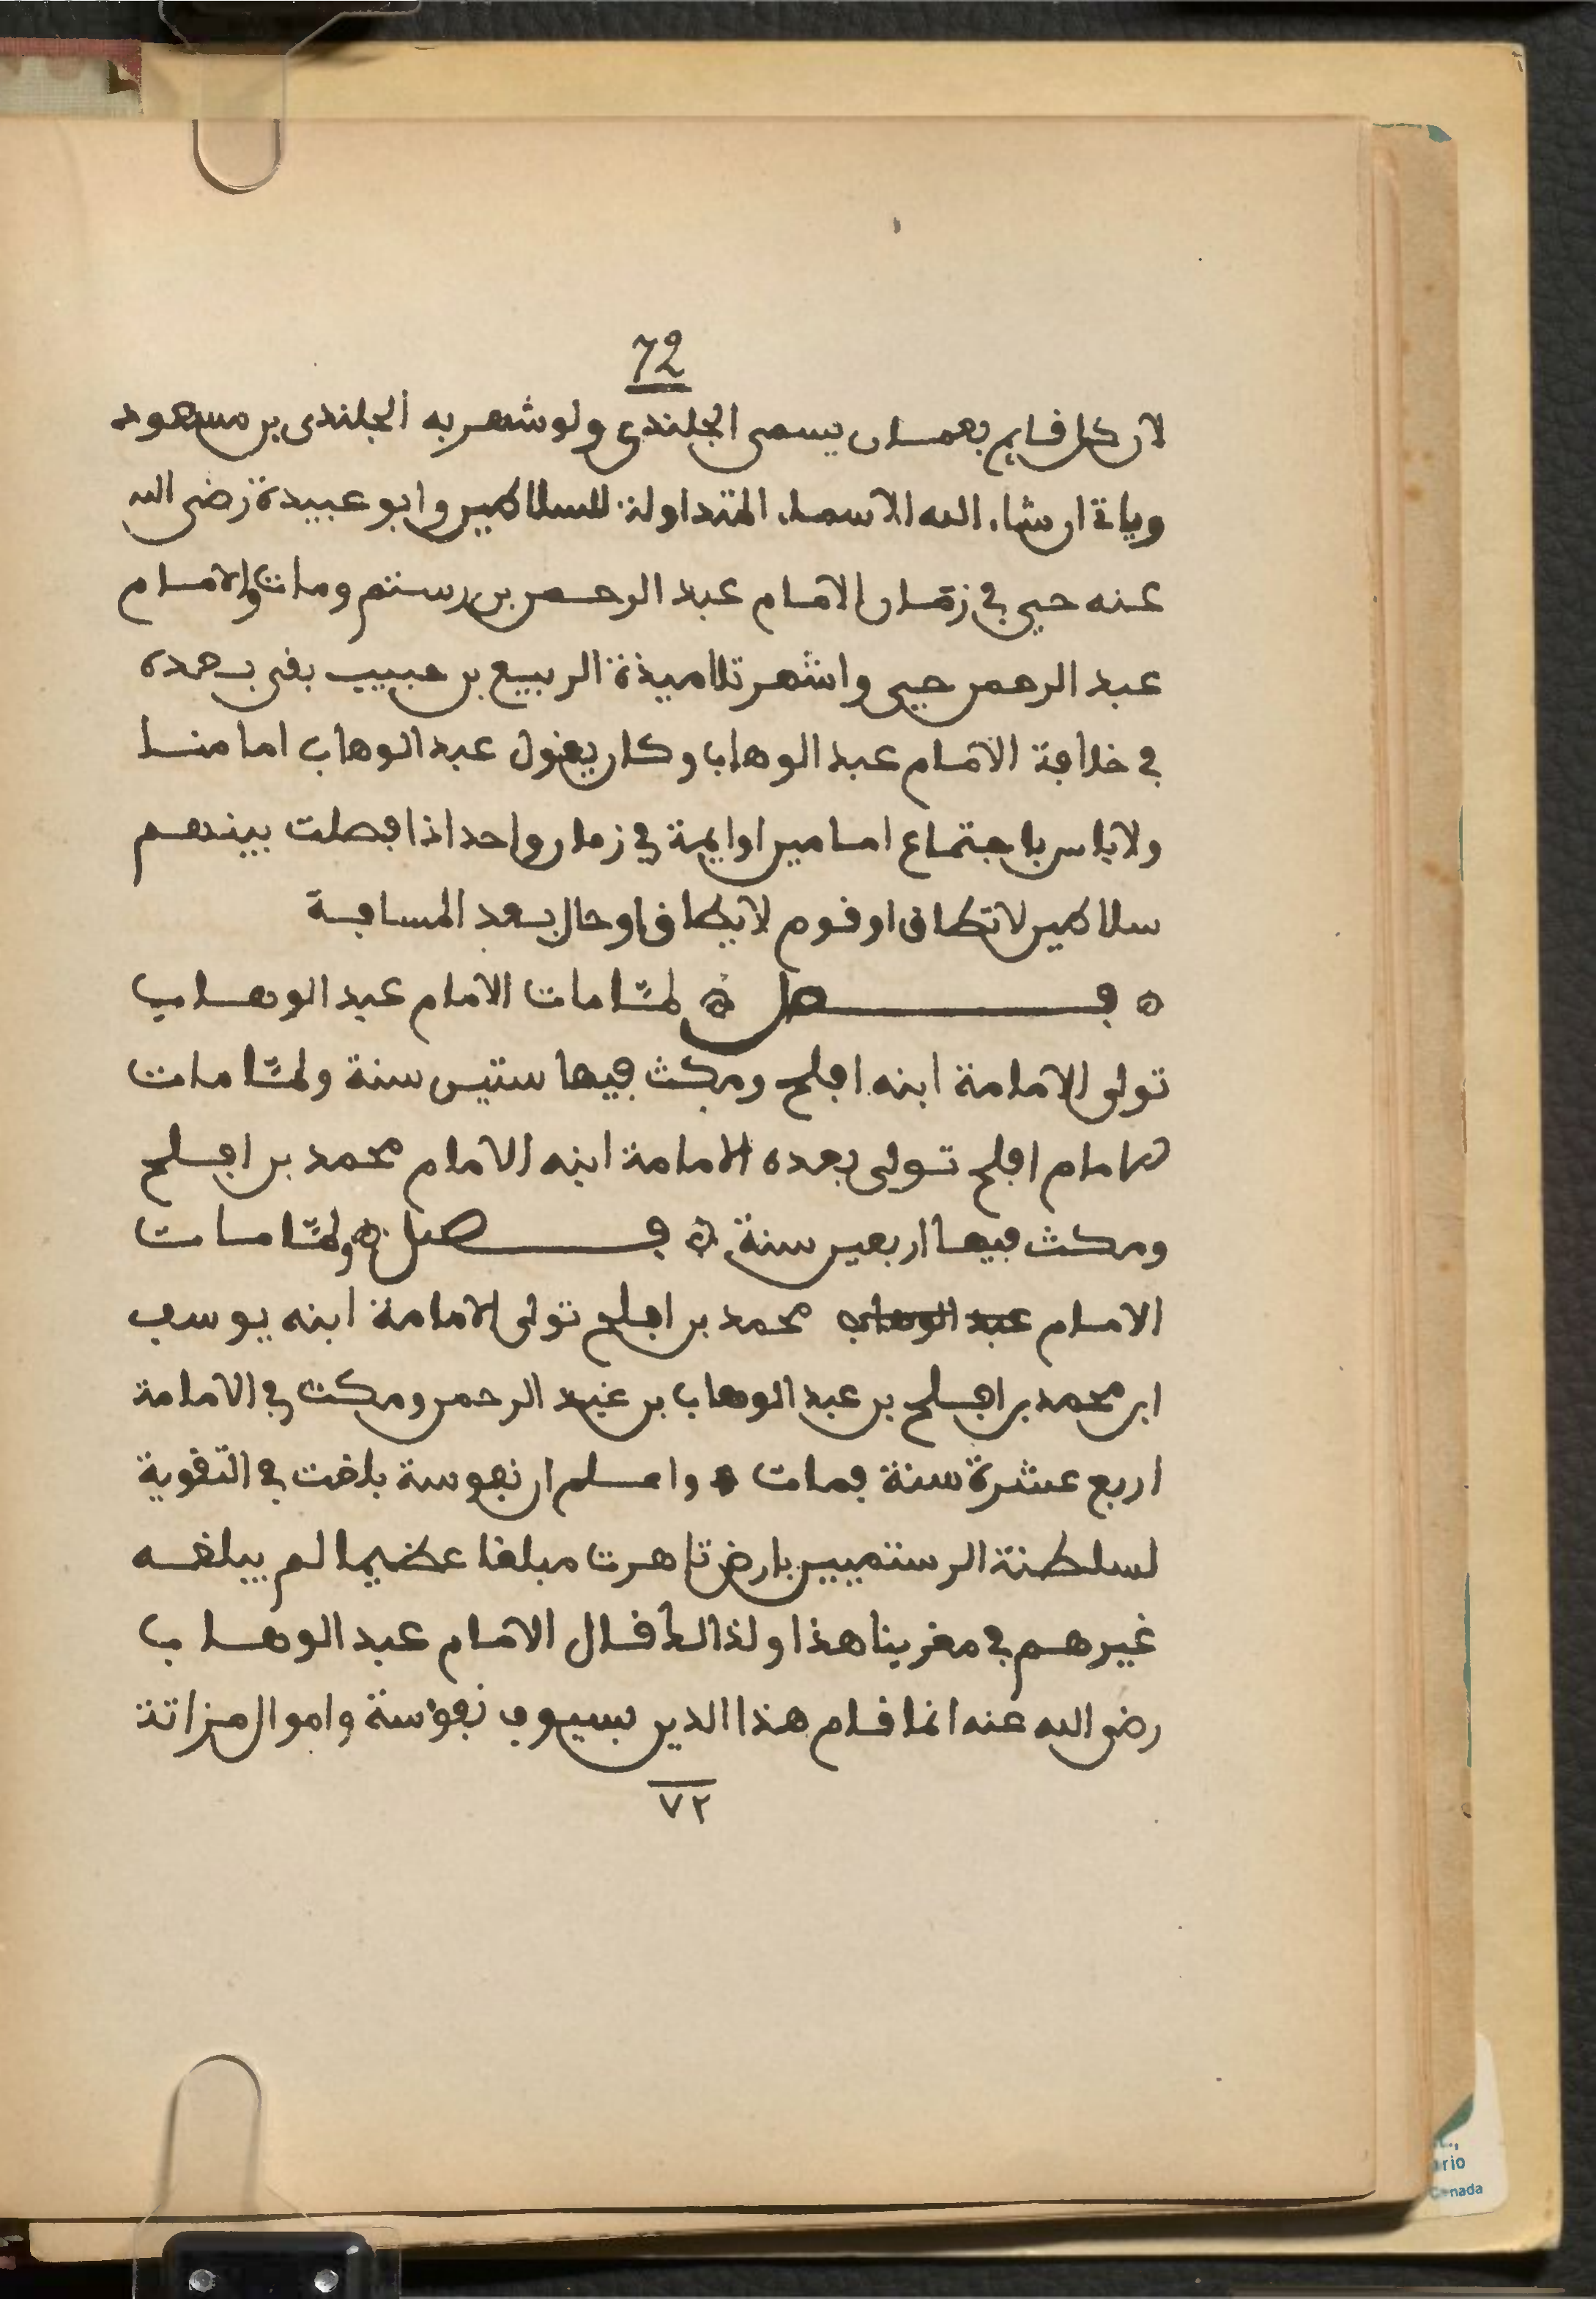 72
لان كل قايم بعمان يسمى الجلندى ولو شهر به الجلندى بن مسعود
وياتى ان شاء الله الاسماء المتداولة للسلاطين وابو عبيدة رضى الله
عنه حيى في زمان الامام عبد الرحمن بن رستم ومات والامام
عبد الرحمن حيى واشهر تلاميذة الربيع بن حبيب بقى بعده
في خلافة الامام عبد الوهاب وكان يقول عبد الوهاب امامنا
ولا باس باجتماع امامين او ايمة في زمان واحد اذا فصلت بينهم
سلاطين لا تطاق او قوم لا يطاق او حال بعد المسافة
فصل لمّا مات الامام عبد الوهاب
تولى الامامة ابنه افلح ومكث فيها ستين سنة ولمّا مات
الامام افلح تولى بعده الامامة ابنه الامام محمد بن افلح
ومكث فيها اربعين سنة فصل ولمّا مات
الامام عبد الوهاب محمد بن افلح تولى الامامة ابنه يوسف
ابن محمد بن افلح بن عبد الوهاب بن عبد الرحمن ومكث في الامامة
اربع عشرة سنة فمات واعلم ان نفوسة بلغت في التقوية
لسلطنة الرستميين بارض تاهرت مبلغا عظيما لم يبلغه
غيرهم في مغربنا هذا ولذالك قال الامام عبد الوهاب
رضى الله عنه انما قام هذا الدين بسيوف نفوسة واموال مزاتة
٧٢
rio
Canada